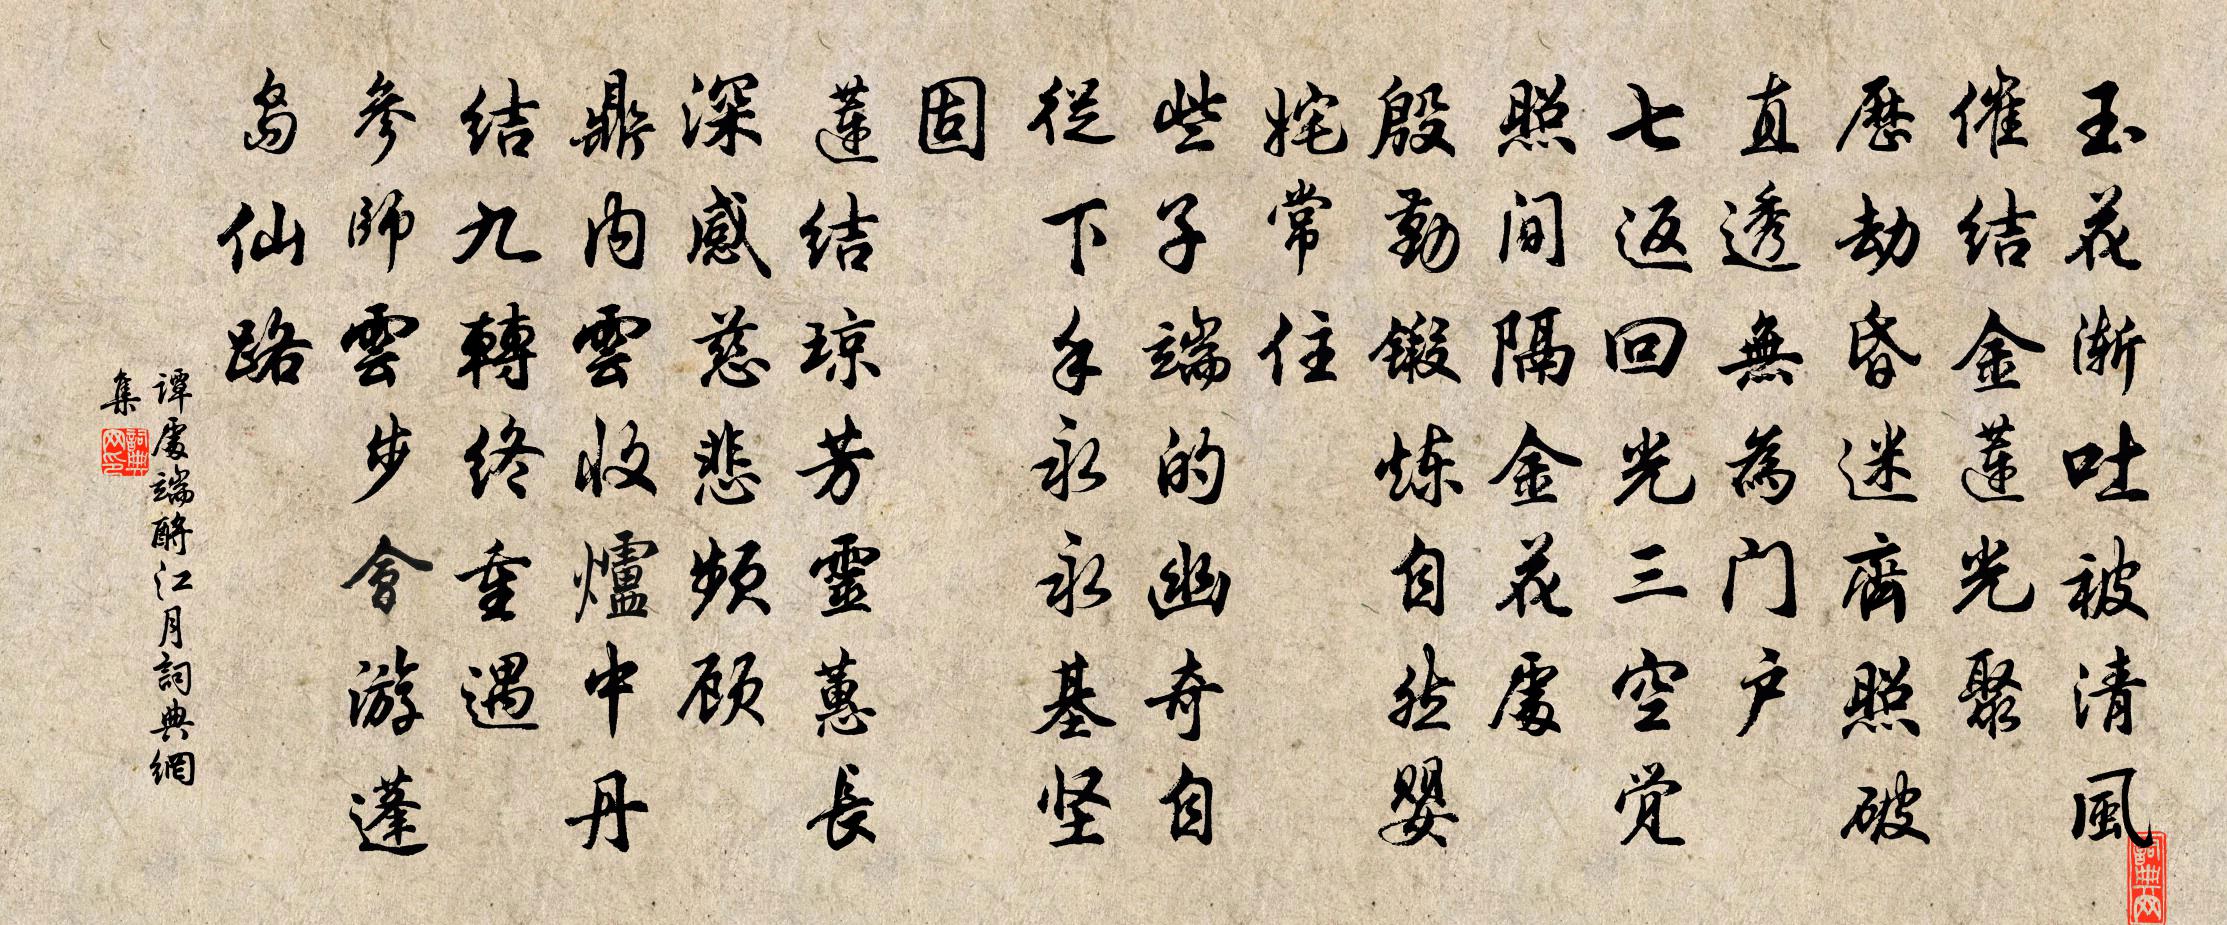 玉花漸吐被清風
催結金蓮光聚
歷劫昏迷齊照破
直透無為门户
七返回光三空觉
照间隔金花處
殷勤鍛炼自然嬰
姹常住
些子端的幽奇自
從下手永永基坚
固
蓮結琼芳靈蕙長
深感慈悲頻顾
鼎内雲收爐中丹
結九轉終重遇
參師雲步會游蓬
岛仙路
谭處端酹江月詞典網
集
詞典网印
詞典网